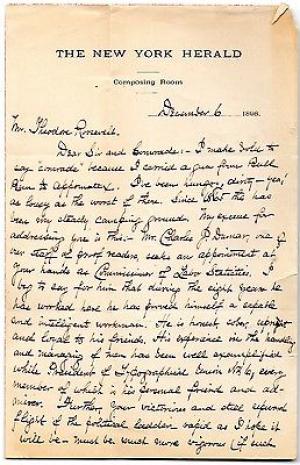 THE NEW YORK HERALD
Composing Room
December 6 1898.
Mr. Theodore Roosevelt.
Dear Sir and Comrade:- I make bold to
say "comrade" because I carried a gun from Bull
Run to Appomattox. I've been hungry, dirty - yea,
as lousy as the worst of them. Since 1865 this has
been my steady camping ground. My excuse for
addressing you is this:- Mr. Charles J. Dumar, one of
our staff of proof readers, seeks an appointment at
your hands as Commissioner of Labor Statistics. I
beg to say for him that during the eight years he
has worked here he has proved himself a capable
and intelligent workman. He is honest, sober, upright
and loyal to his friends. His experience in the handling
and managing of men has been well exemplified
while President of Typographical Union No. 6, every
member of which is his personal friend and ad-
mirer. Further, your victorious and still upward
flight of the political ladder rapid as I hope it
will be - must be much more vigorous (if such